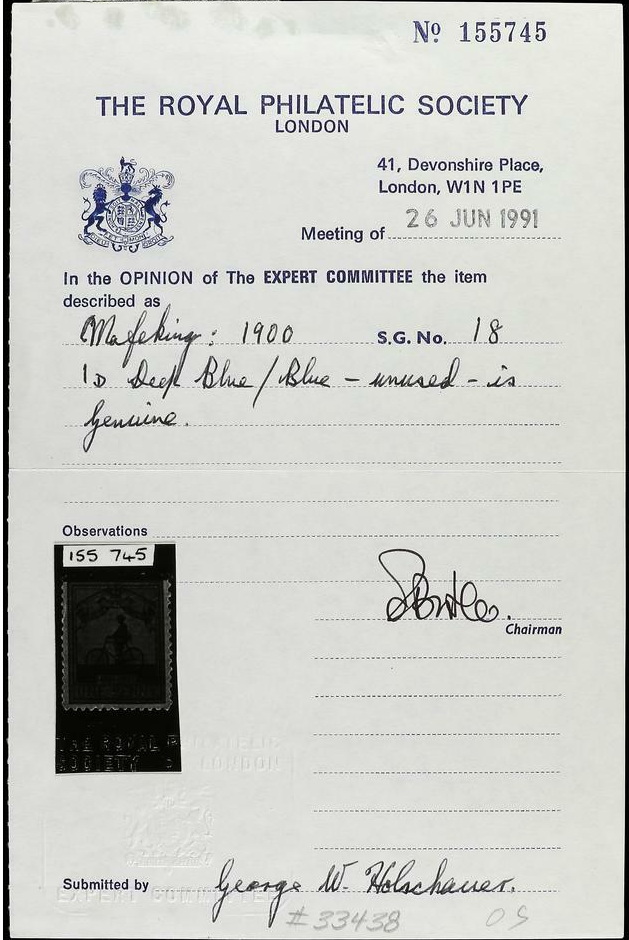 Nº 155745
THE ROYAL PHILATELIC SOCIETY
LONDON
41, Devonshire Place,
London, W1N 1PE
Meeting of 26 JUN 1991
In the OPINION of The EXPERT COMMITTEE the item
described as
Mafeking: 1900 S.G. No. 18
1D Deep Blue/Blue - unused - is
genuine.
Observations
155 745
Chairman
THE ROYAL PHILATELIC
SOCIETY LONDON
Submitted by George W. Holschauer.
EXPERT COMMITTEE
#33438 OS